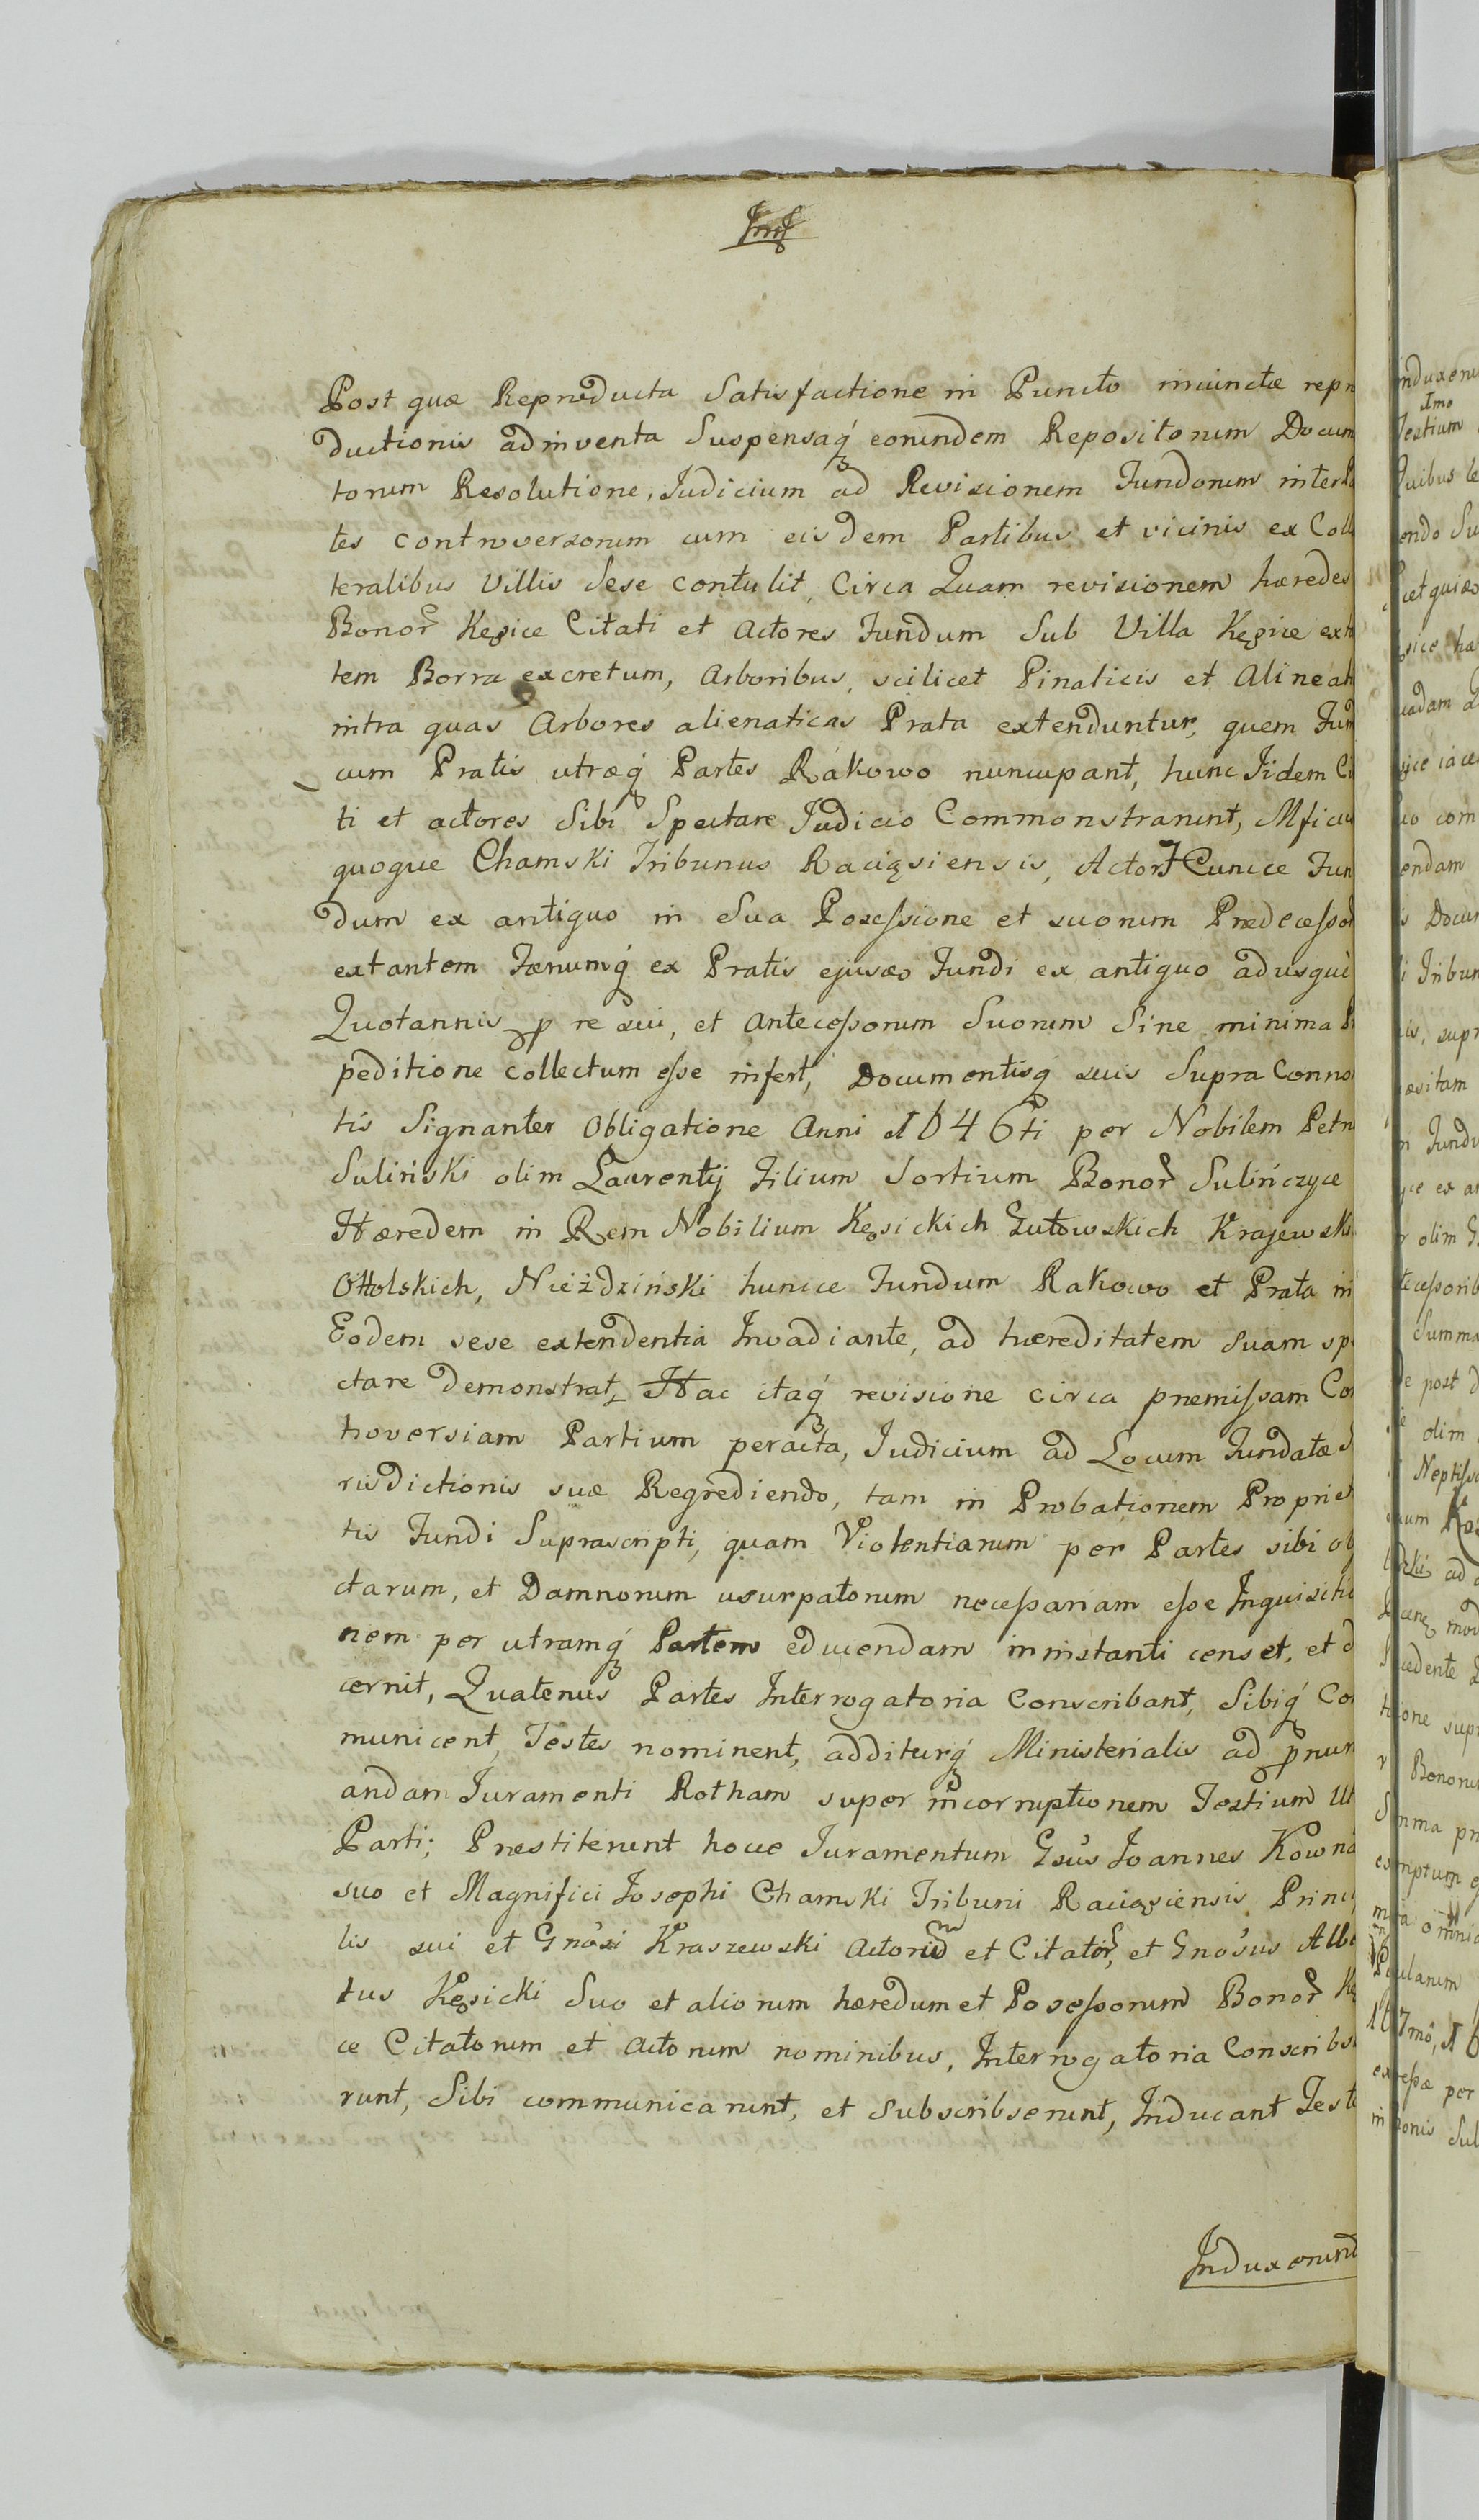 Post quæ Reproducta Satisfactione in Puncto iniunctæ repro
ductionis adinventa Suspensaq́ eorundem Repositorum Docum
torum Resolutione, Iudicium ad Revisionem Fundorum inter
tes controversorum cum eisdem Partibus et vicinis ex Coll
teralibus Villis Sese contulit, Circa Quam revisionem hæredes
Bonor Kęsice Citati et Actores Fundum Sub Villa Kęsice ext
tem Borra excretum, Arboribus, scilicet Pinaticis et Alineat
intra quas Arbores alienaticas Prata extenduntur, quem Fun
cum Pratis utræq́ Partes Rákowo nuncupant, hunc Iidem Ci
ti et actores Sibi Spectare Iudicio Commonstrarunt, Mficus
quoque Chamski Tribunus Raciąsiensis, Actor Fun
dum ex antiquo in Sua Posessione et suorum Prædecessor
extantem Fænumq́ ex Pratis ejusæo Fundi ex antiquo adusquè
Quotannis p re sui, et Antecessorum Suorum Sine minima
peditione collectum esse infert, Documentisq́ suis Supra Conno
tis Signanter Obligatione Anni 1646ti per Nobilem Petru
Suliński olim Laurentij Filium Sortium Bonor Sulińczyce
Hæredem in Rem Nobilium Kęsickich Gutowskich Krajewski
Ottolskich, Nieżdziński hunce Fundum Rakowo et Prata in
Eodem sese extendentia Invadiante, ad hæreditatem Suam spe
ctare demonstrat, Hac itaq́ revisione circa præmissam Con
troversiam Partium peracta, Iudicium ad Locum Fundatæ
risdictionis suæ Regrediendo, tam in Probationem Propriet
tis Fundi Suprascripti, quam Violentiarum per Partes sibi ob
ctarum, et Damnorum usurpatorum necessariam esse Inquisitio
nem per utramq́ Partem educendam in instanti censet, et d
cernit, Quatenus Partes Interrogatoria Conscribant, Sibiq́ Com
municent, Testes nominent, additurq́ Ministerialis ad pnun
andam Iuramenti Rotham super incorruptionem Testium Ut
Parti; Præstiterunt hocce Iuramentum Gsus Joannes Kowna
suo et Magnifici Josephi Chamski Tribuni Raciąsiensis Princi
lis sui et Gnosi Kraszewski Actorum et Citator, et Gnosus Albe
tus Kęsicki Suo et aliorum hæredum et Posessorum Bonor Kę
ce Citatorum et Actorum nominibus, Interrogatoria Conscribse
runt, Sibi communicarunt, et Subscribserunt, Inducant Test
Induxerunt